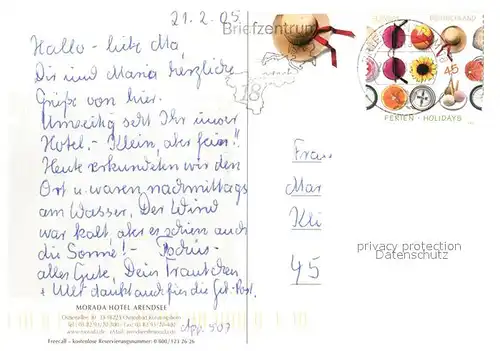 21.2.05
Hallo - liebe Ma,
Dir und Maria herzliche
Grüße von hier.
Umseitig seht Ihr unser
Hotel. - Klein, aber fein!!
Heute erkundeten wir den
Ort u. waren nachmittags
am Wasser. Der Wind
war kalt, aber es schien auch
die Sonne! -
alles Gute, Dein
+ dankt auch für die Geb.-Post.
MORADA HOTEL ARENDSEE
18225 Ostseebad Kühlungsborn
Freecall - kostenlose Reservierungsnummer: 0 800/123 26 26
App. 507
Briefzentrum
18
DEUTSCHLAND
45
FERIEN - HOLIDAYS
Frau
Mar
Kli
45
privacy protection
Datenschutz